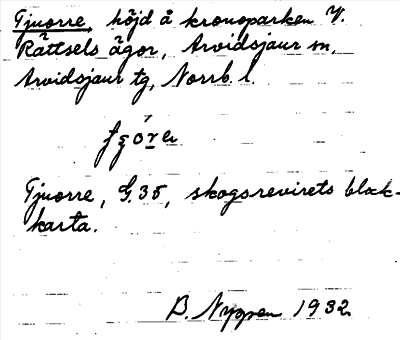 Tjuorre, höjd å kronoparken V.
Rättsels ägor, Arvidsjaur sn,
Arvidsjaur tg, Norrb. l.
Tjuorre, G.35, skogsrevirets block-
karta.
B. Nyppen 1932